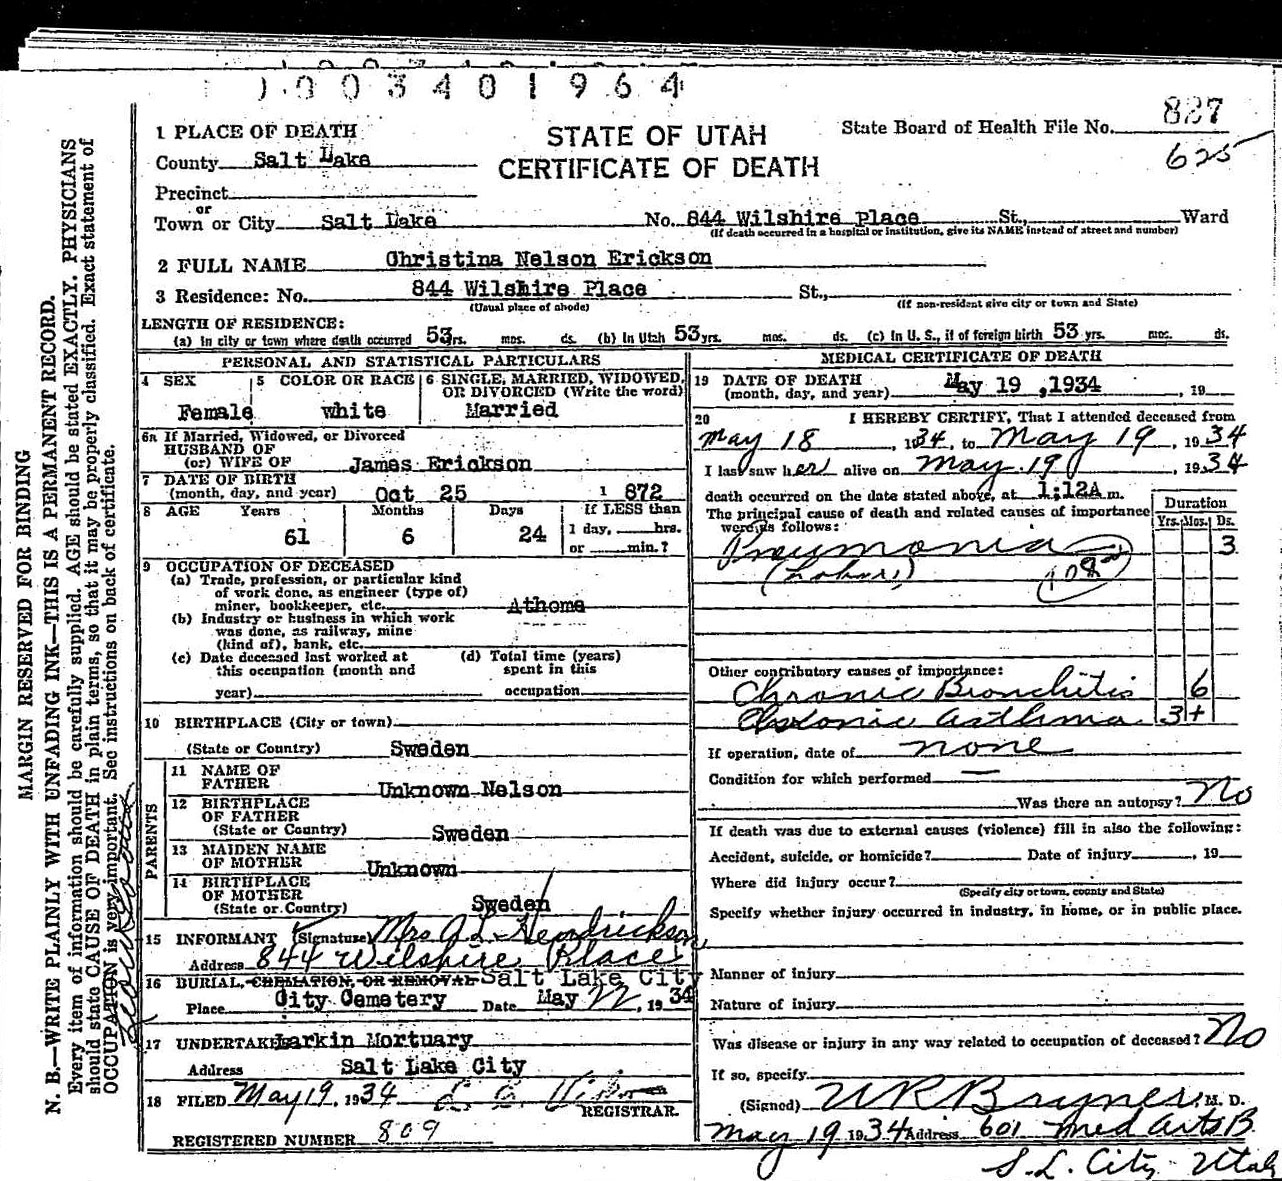 1003401964
1 PLACE OF DEATH
STATE OF UTAH
CERTIFICATE OF DEATH
State Board of Health File No. 827
625
County Salt Lake
Precinct
or
Town or City Salt Lake No. 844 Wilshire Place St., Ward
(If death occurred in a hospital or institution, give its NAME instead of street and number)
2 FULL NAME Christina Nelson Erickson
3 Residence: No. 844 Wilshire Place St.,
(Usual place of abode) (If non-resident give city or town and State)
LENGTH OF RESIDENCE:
(a) In city or town where death occurred 53 yrs. mos. ds. (b) In Utah 53 yrs. mos. ds. (c) In U. S., if of foreign birth 53 yrs. mos. ds.
PERSONAL AND STATISTICAL PARTICULARS
4 SEX Female
5 COLOR OR RACE white
6 SINGLE, MARRIED, WIDOWED,
OR DIVORCED (Write the word)
Married
6a If Married, Widowed, or Divorced
HUSBAND OF
(or) WIFE OF James Erickson
7 DATE OF BIRTH
(month, day, and year) Oct 25 1872
8 AGE Years Months Days If LESS than
61 6 24 1 day, hrs.
or min.?
9 OCCUPATION OF DECEASED
(a) Trade, profession, or particular kind
of work done, as engineer (type of)
miner, bookkeeper, etc. Athome
(b) Industry or business in which work
was done, as railway, mine
(kind of), bank, etc.
(c) Date deceased last worked at
this occupation (month and
year)
(d) Total time (years)
spent in this
occupation
10 BIRTHPLACE (City or town)
(State or Country) Sweden
PARENTS
11 NAME OF
FATHER Unknown Nelson
12 BIRTHPLACE
OF FATHER
(State or Country) Sweden
13 MAIDEN NAME
OF MOTHER Unknown
14 BIRTHPLACE
OF MOTHER
(State or Country) Sweden
15 INFORMANT (Signature) Mrs A L Hendrickson
Address 844 Wilshire Place
16 BURIAL, CREMATION, OR REMOVAL Salt Lake City
Place City Cemetery Date May 22, 1934
17 UNDERTAKER Larkin Mortuary
Address Salt Lake City
18 FILED May 19, 1934
REGISTRAR.
REGISTERED NUMBER 809
MEDICAL CERTIFICATE OF DEATH
19 DATE OF DEATH
(month, day, and year) May 19, 1934, 19
20 I HEREBY CERTIFY, That I attended deceased from
May 18, 1934, to May 19, 1934
I last saw her alive on May 19, 1934
death occurred on the date stated above, at 1:12A m.
The principal cause of death and related causes of importance
were as follows:
Duration
Yrs. Mos. Ds.
Pneumonia 3
(Lobar) 108
Other contributory causes of importance:
Chronic Bronchitis 6
Chronic asthma 3+
If operation, date of none
Condition for which performed —
Was there an autopsy? No
If death was due to external causes (violence) fill in also the following:
Accident, suicide, or homicide? Date of injury , 19
Where did injury occur?
(Specify city or town, county and State)
Specify whether injury occurred in industry, in home, or in public place.
Manner of injury
Nature of injury
Was disease or injury in any way related to occupation of deceased? No
If so, specify
(Signed) W R Bryner, M. D.
May 19 1934 Address 601 Med Arts B
S. L. City Utah
MARGIN RESERVED FOR BINDING
N. B.—WRITE PLAINLY WITH UNFADING INK—THIS IS A PERMANENT RECORD.
Every item of information should be carefully supplied. AGE should be stated EXACTLY. PHYSICIANS
should state CAUSE OF DEATH in plain terms, so that it may be properly classified. Exact statement of
OCCUPATION is very important. See instructions on back of certificate.